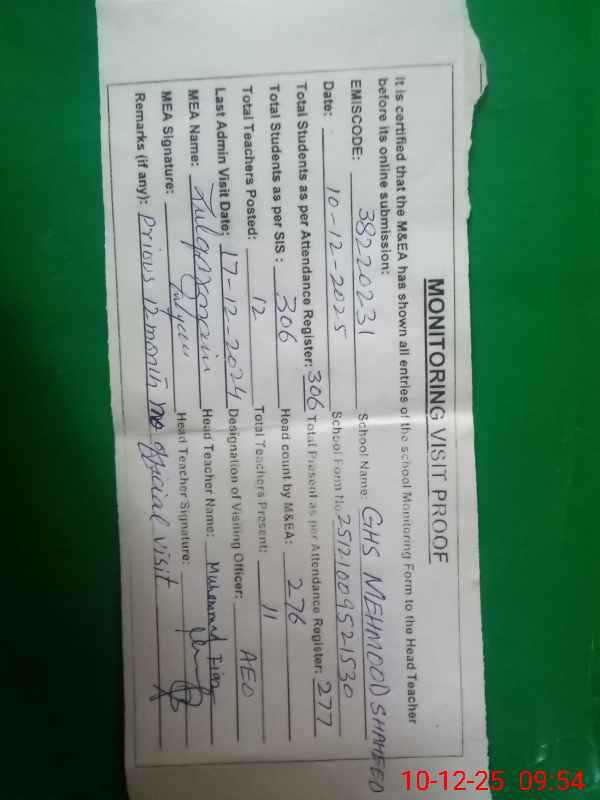 MONITORING VISIT PROOF
It is certified that the M&EA has shown all entries of the school Monitoring Form to the Head Teacher
before its online submission:
EMISCODE: 38220231 School Name: GHS MEHMOOD SHAHEED
Date: 10-12-2025 School Form No 25121009521530
Total Students as per Attendance Register: 306 Total Present as per Attendance Register: 277
Total Students as per SIS: 306 Head count by M&EA: 276
Total Teachers Posted: 12 Total Teachers Present: 11
Last Admin Visit Date: 17-12-2024 Designation of Visiting Officer: AEO
MEA Name: Head Teacher Name: Muhammad
MEA Signature: Head Teacher Signature:
Remarks (if any): Prious 12 month no official visit
10-12-25 09:54